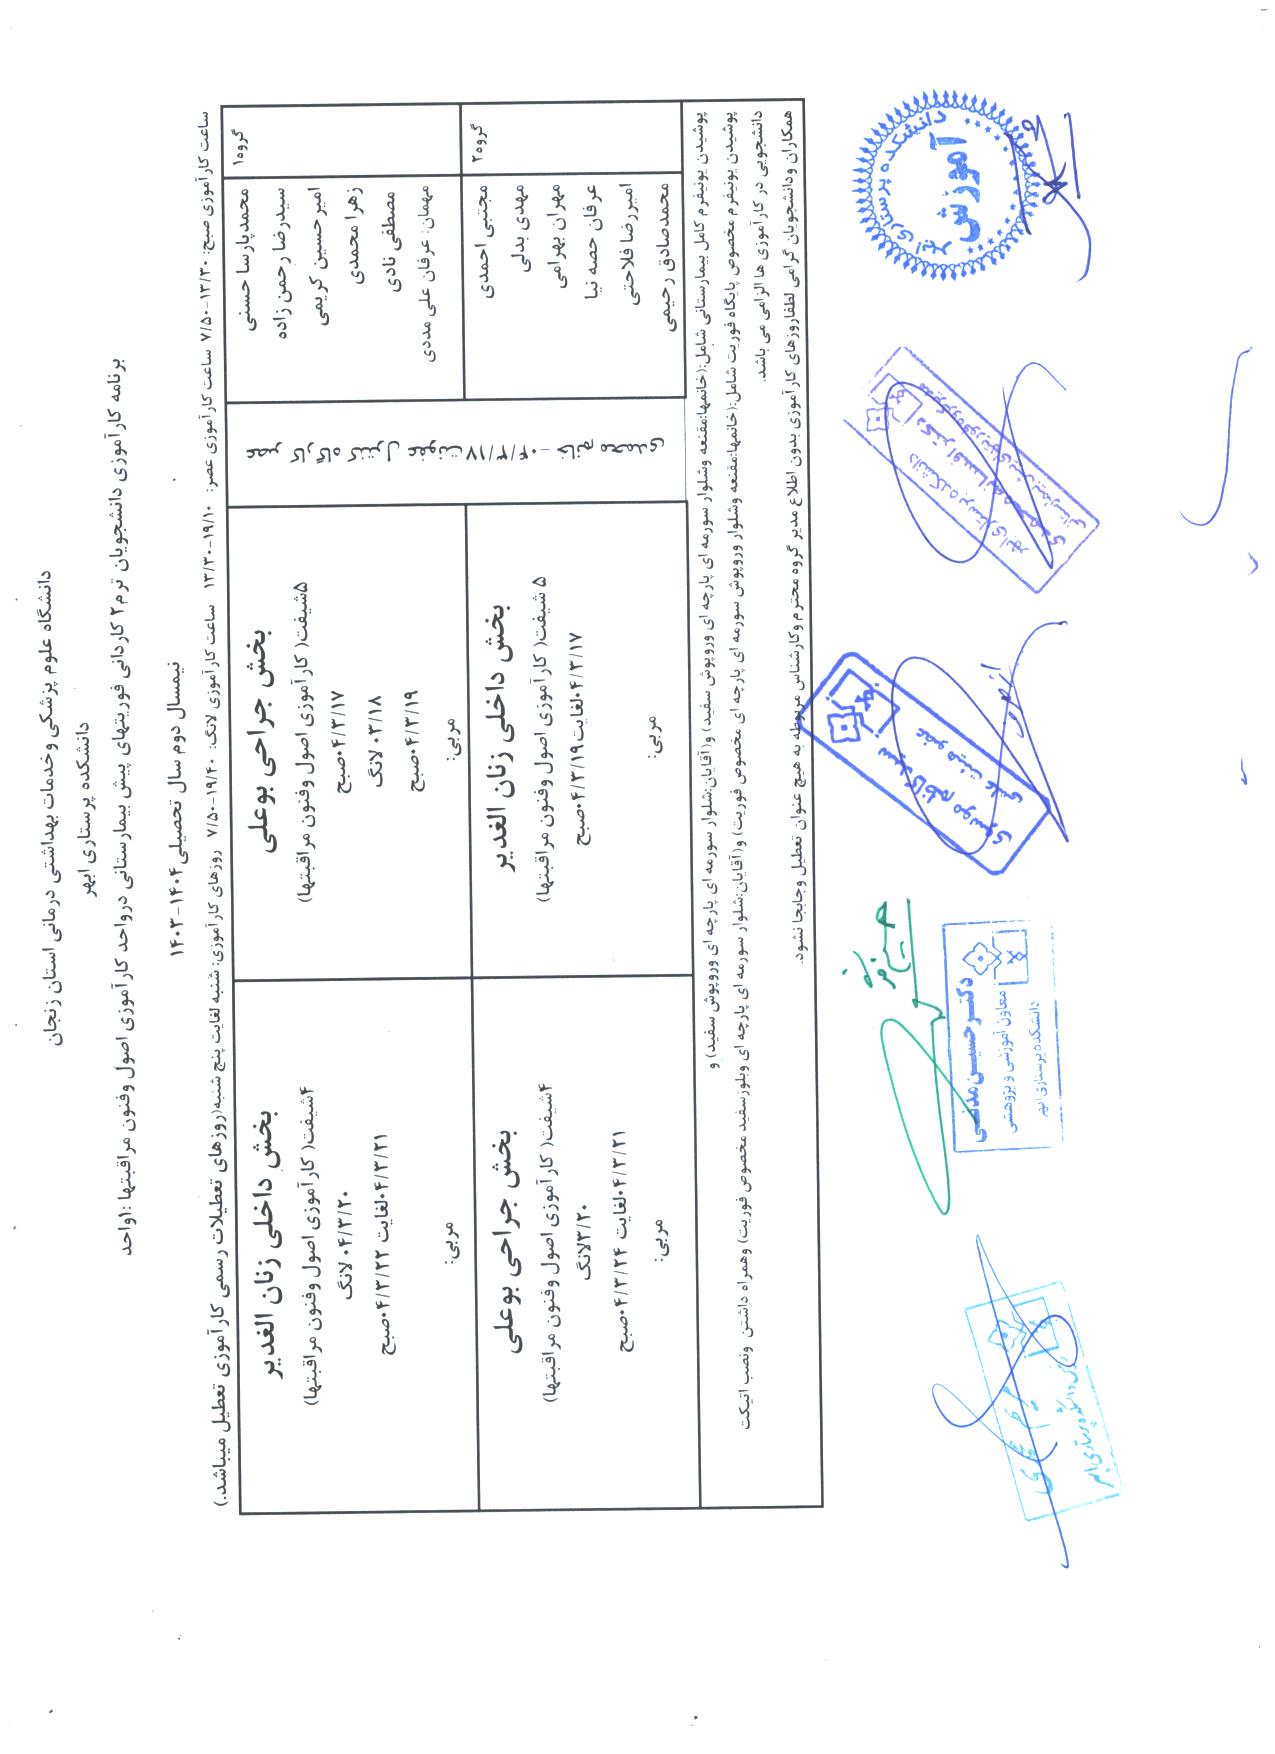 دانشگاه علوم پزشکی وخدمات بهداشتی درمانی استان زنجان
دانشکده پرستاری ابهر
برنامه کارآموزی دانشجویان ترم۲ کاردانی فوریتهای پیش بیمارستانی درواحد کارآموزی اصول وفنون مراقبتها :۱واحد
نیمسال دوم سال تحصیلی۱۴۰۴-۱۴۰۳
ساعت کارآموزی صبح: ۱۳/۳۰-۷/۵۰ ساعت کارآموزی عصر: ۱۹/۱۰-۱۳/۳۰ ساعت کارآموزی لانگ: ۱۹/۴۰-۷/۵۰ روزهای کارآموزی: شنبه لغایت پنج شنبه(روزهای تعطیلات رسمی کارآموزی تعطیل میباشد.)
گروه۱
محمدپارسا حسنی
سیدرضا رحمن زاده
امیرحسین کریمی
زهرا محمدی
مصطفی نادی
مهمان: عرفان علی مددی
خانم محمدی - ۰۴/۳/۱۷ کارگاه کنترل عفونت عصر
بخش جراحی بوعلی
۵شیفت( کارآموزی اصول وفنون مراقبتها)
۰۴/۳/۱۷صبح
۰۳/۱۸ لانگ
۰۴/۳/۱۹صبح
مربی:
بخش داخلی زنان الغدیر
۴شیفت( کارآموزی اصول وفنون مراقبتها)
۰۴/۳/۲۰ لانگ
۰۴/۳/۲۱لغایت ۰۴/۳/۲۲صبح
مربی:
گروه۲
مجتبی احمدی
مهدی بدلی
مهران بهرامی
عرفان حصه نیا
امیررضا فلاحتی
محمدصادق رحیمی
بخش داخلی زنان الغدیر
۵ شیفت( کارآموزی اصول وفنون مراقبتها)
۰۴/۳/۱۷لغایت۰۴/۳/۱۹صبح
مربی:
بخش جراحی بوعلی
۴شیفت( کارآموزی اصول وفنون مراقبتها)
۳/۲۰لانگ
۰۴/۳/۲۱لغایت ۰۴/۳/۲۴صبح
مربی:
پوشیدن یونیفرم کامل بیمارستانی شامل:(خانمها:مقنعه وشلوار سورمه ای پارچه ای وروپوش سفید) و(آقایان:شلوار سورمه ای پارچه ای وروپوش سفید) و
پوشیدن یونیفرم مخصوص پایگاه فوریت شامل:(خانمها:مقنعه وشلوار وروپوش سورمه ای پارچه ای مخصوص فوریت) و(آقایان:شلوار سورمه ای پارچه ای وبلوزسفید مخصوص فوریت) وهمراه داشتن ونصب اتیکت
دانشجویی در کارآموزی ها الزامی می باشد.
همکاران ودانشجویان گرامی لطفاروزهای کارآموزی بدون اطلاع مدیر گروه محترم وکارشناس مربوطه به هیچ عنوان تعطیل وجابجا نشود.
دانشکده پرستاری ابهر
آموزش
دانشکده پرستاری ابهر
سید کاظم موسوی
عضو هیئت علمی
دکتر حسین مدنی
معاون آموزشی و پژوهشی
دانشکده پرستاری ابهر